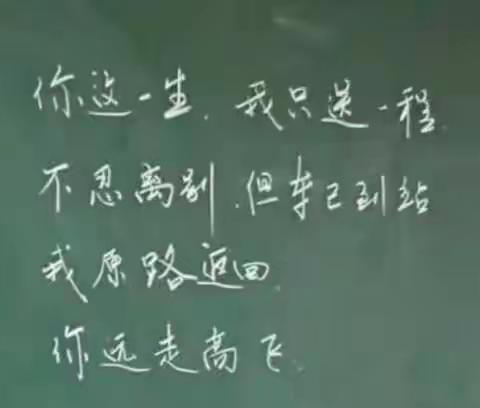 你这一生，我只送一程，
不忍离别，但车已到站
我原路返回，
你远走高飞。